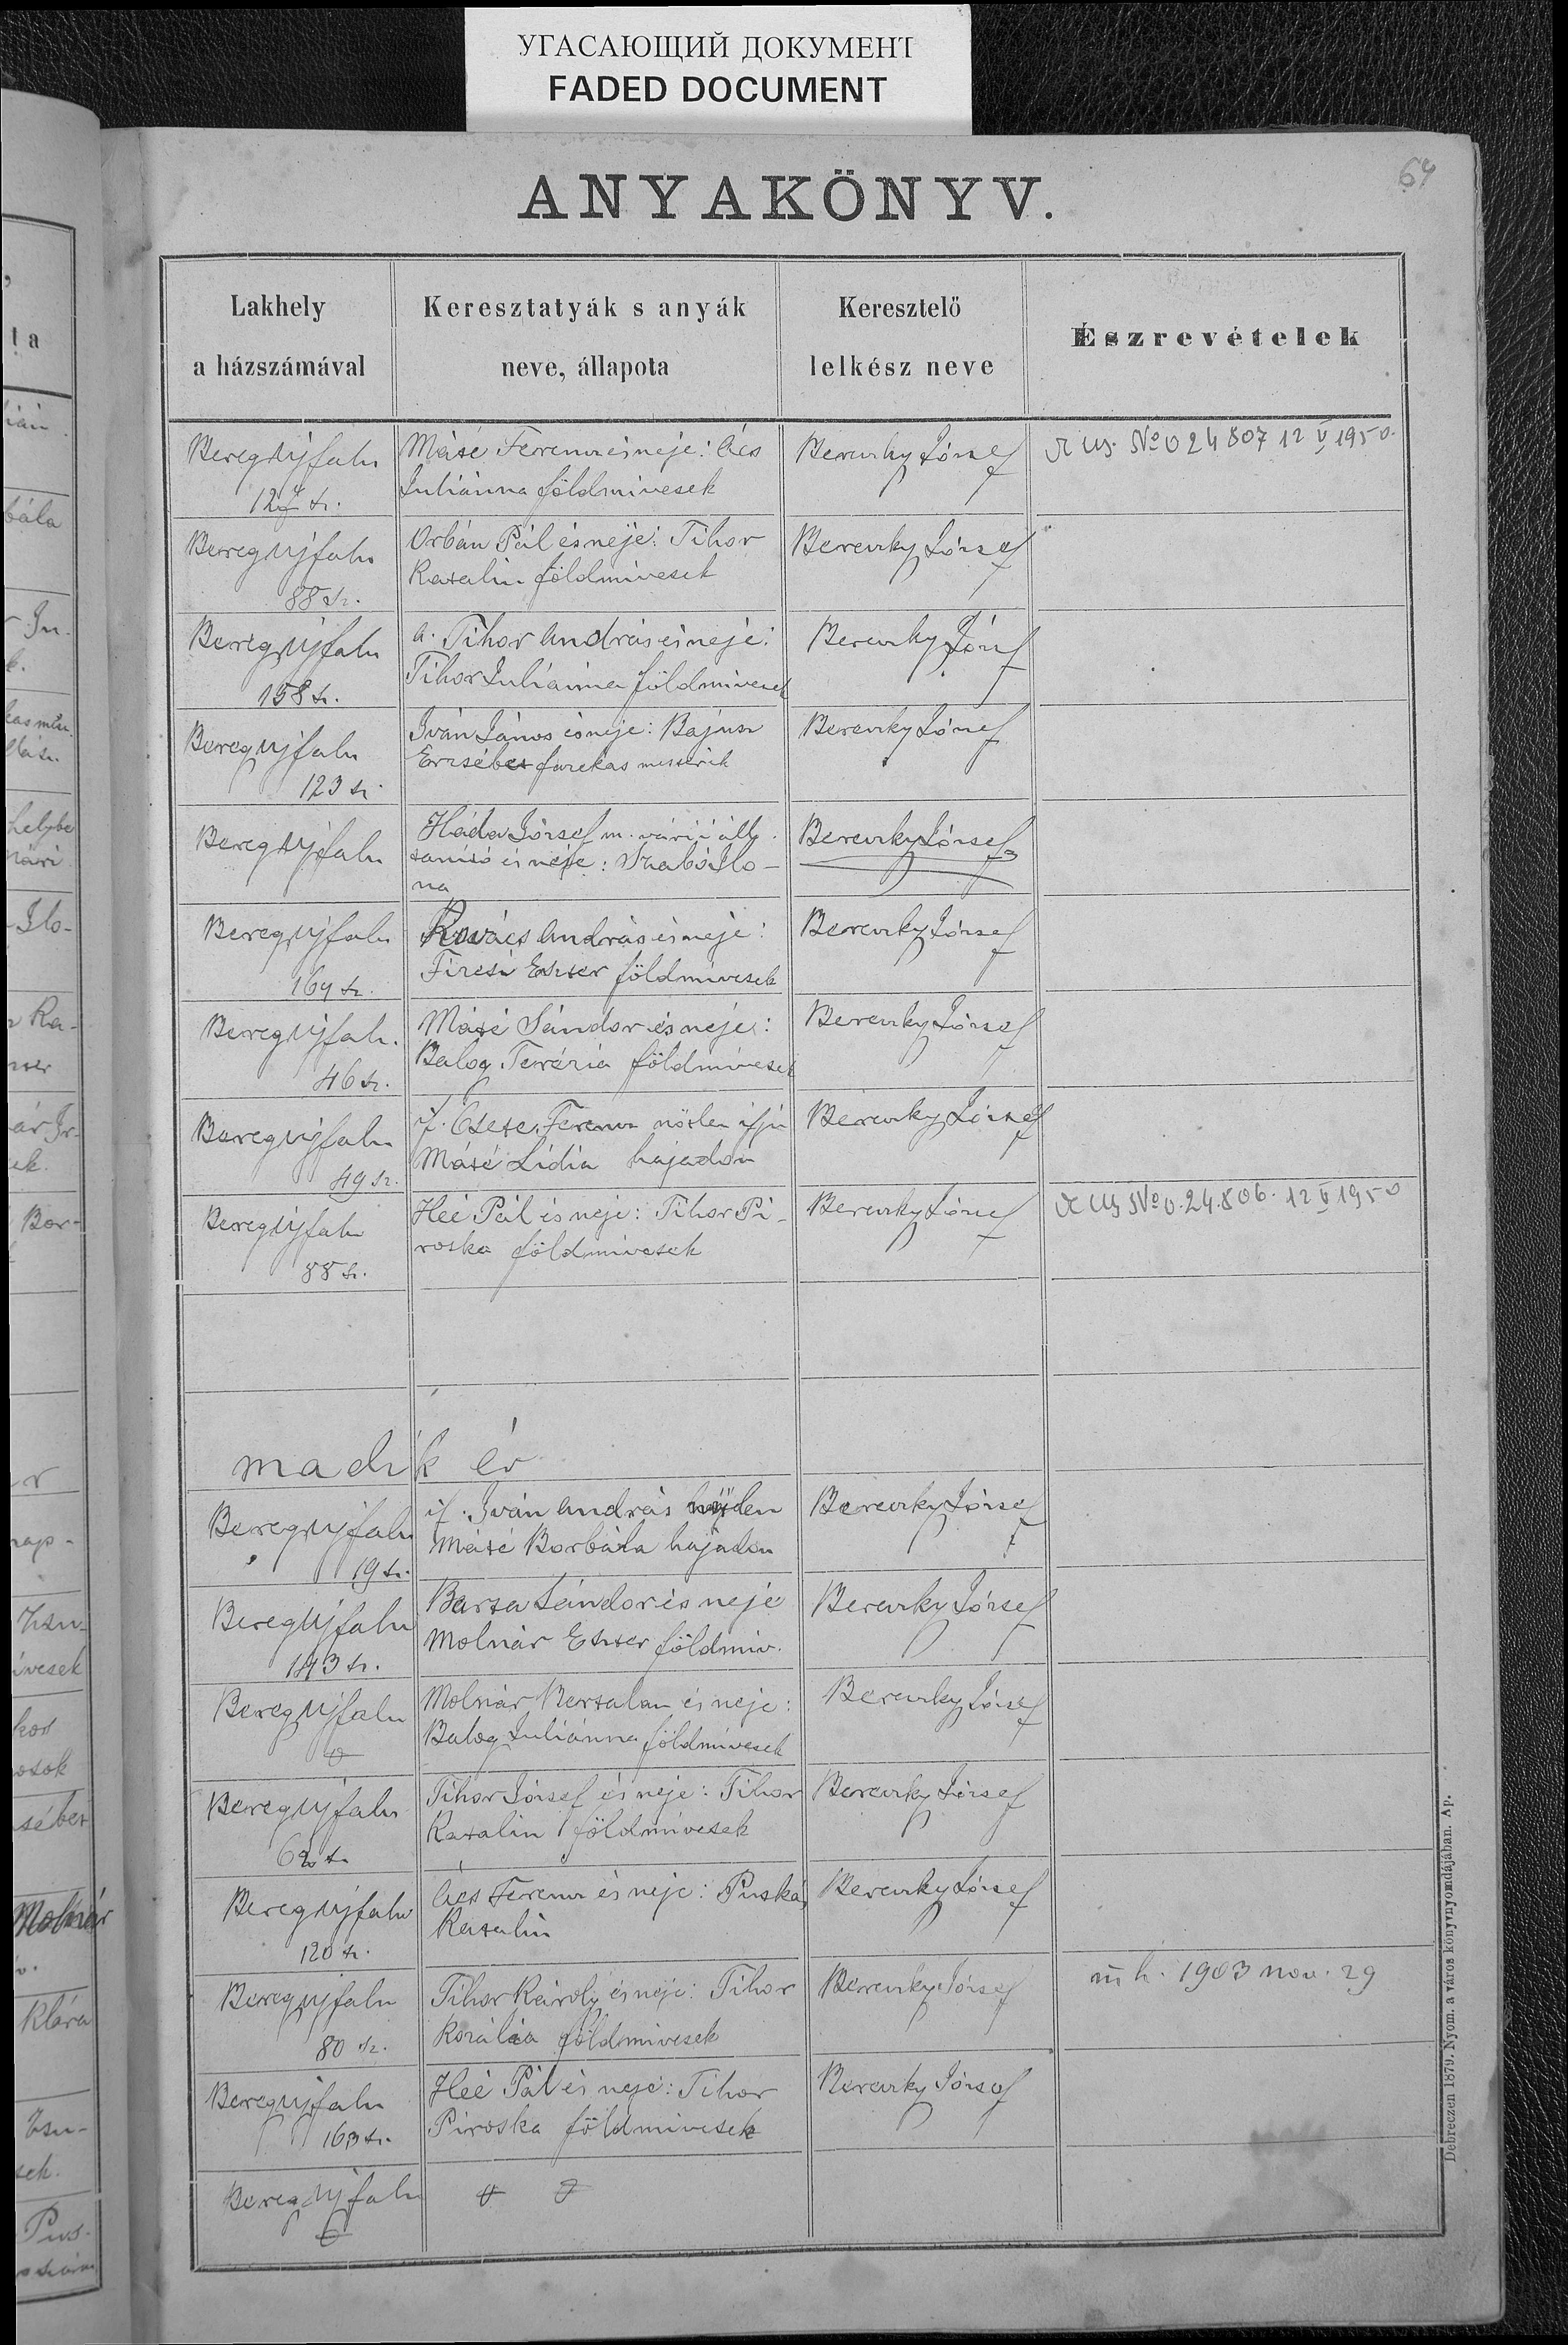 УГАСАЮЩИЙ ДОКУМЕНТ
FADED DOCUMENT
64
ANYAKÖNYV.
Lakhely
a házszámával
Keresztatyák s anyák
neve, állapota
Keresztelő
lelkész neve
Észrevételek
Beregujfalu
Máté Ferencz és neje: Ács
Juliánna földmivesek
Bereczky József
No 024807 12 V 1950.
Beregujfalu
88 sz.
Orbán Pál és neje: Tihor
Katalin földmivesek
Bereczky József
Beregujfalu
158 sz.
a. Tihor András és neje:
Tihor Juliánna földmivesek
Bereczky József
Beregujfalu
123 sz.
Iván János és neje: Bajusz
Erzsébet fazekas
Bereczky József
Beregujfalu
Háda József m. vári i áll.
tanító és neje: Szabó Ilo-
na
Bereczky József
Beregujfalu
169 sz.
Kovács András és neje:
Eszter földmivesek
Bereczky József
Beregujfalu
46 sz.
Máté Sándor és neje:
Balog Terézia földmivesek
Bereczky József
Beregujfalu
49 sz.
if. Csete Ferencz nőtlen ifju
Máté Lidia hajadon
Bereczky József
Beregujfalu
88 sz.
Heé Pál és neje: Tihor Pi-
roska földmivesek
Bereczky József
No 0.24.806. 12 V 1950
madik év
Beregujfalu
19 sz.
if. Iván András
Máté Borbála hajadon
Bereczky József
Beregujfalu
143 sz.
Barta Sándor és neje
Molnár Eszter földmiv.
Bereczky József
Beregujfalu
Molnár Bertalan és neje:
Balog Juliánna földmivesek
Bereczky József
Beregujfalu
Tihor József és neje: Tihor
Katalin földmivesek
Bereczky József
Beregujfalu
120 sz.
Ács Ferencz és neje: Puskás
Katalin
Bereczky József
Beregujfalu
80 sz.
Tihor Károly és neje: Tihor
Rozália földmivesek
Bereczky József
m h. 1903 nov. 29
Beregujfalu
163 sz.
Heé Pál és neje: Tihor
Piroska földmivesek
Bereczky József
Beregujfalu
Debreczen 1879. Nyom. a város könyvnyomdájában. Ap.